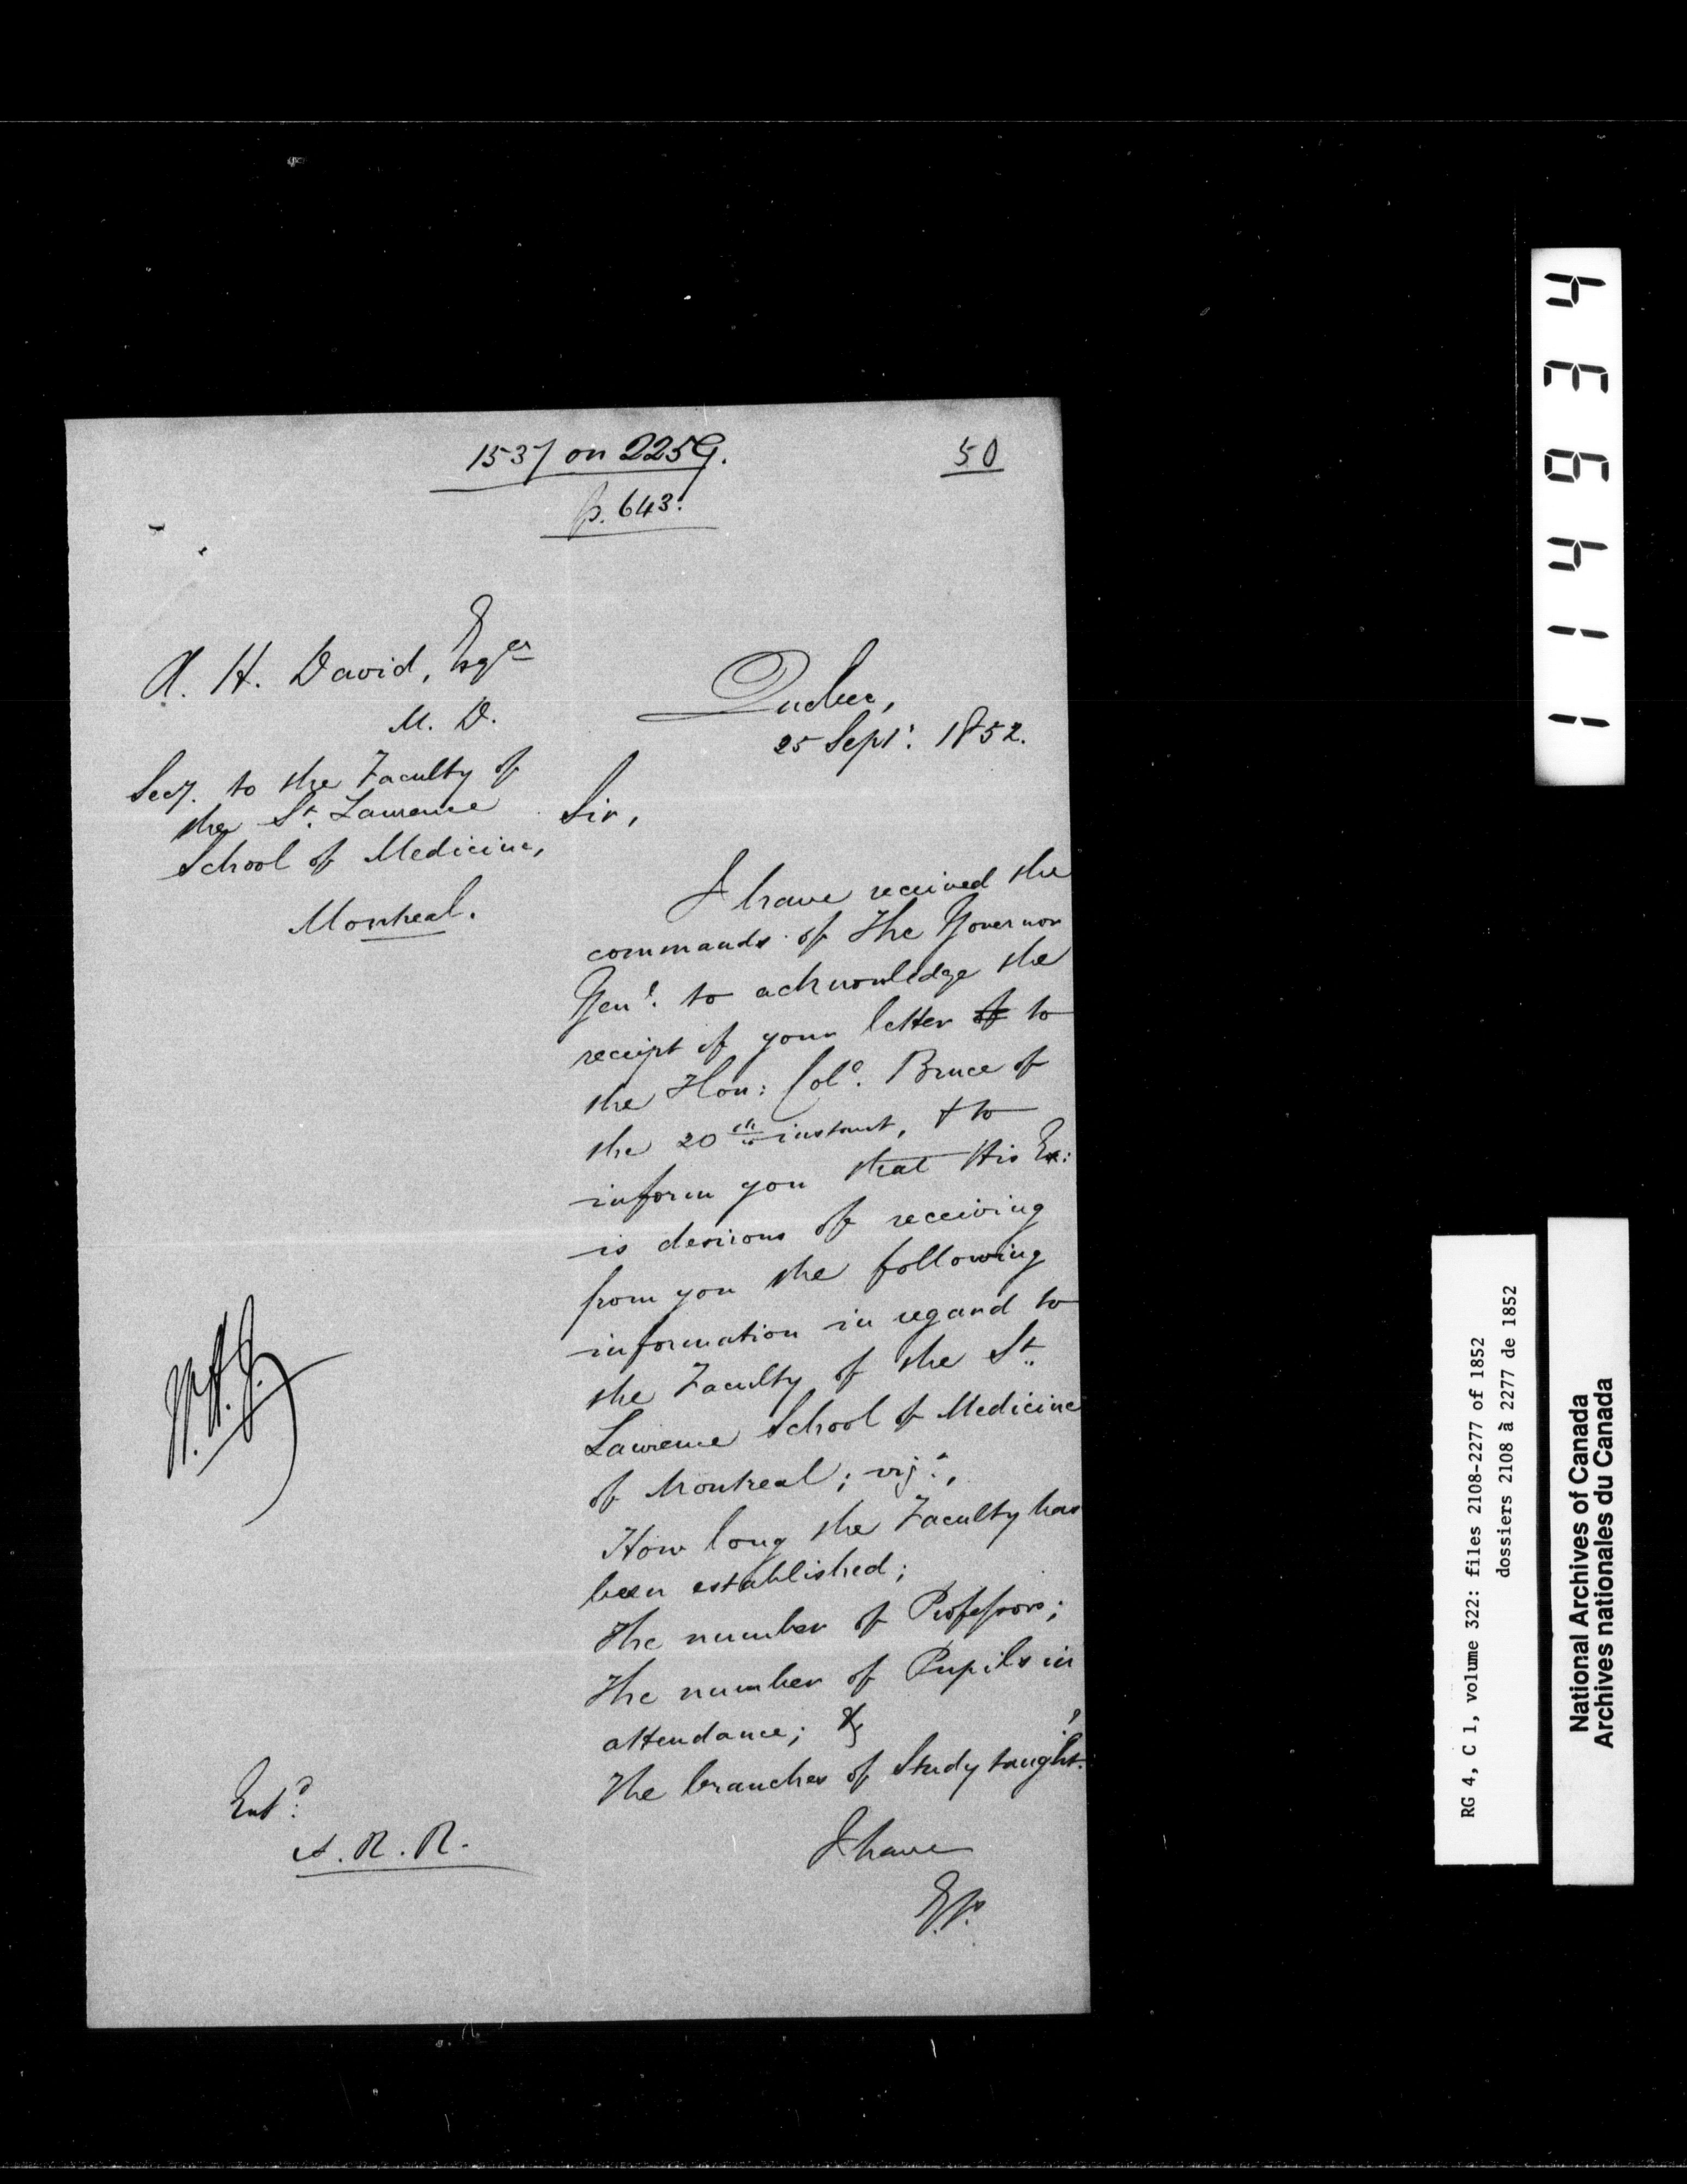 1537 on 2259.
50
p. 643.
A. H. David, Esqer
M. D.
Secy. to the Faculty of
the St. Lawrence
School of Medicine,
Montreal.
Quebec,
25 Sept: 1852.
Sir,
I have received the
commands of The Governor
Genl. to acknowledge the
receipt of your letter of to
the Hon: Col. Bruce of
the 20th instant, & to
inform you that His Ex:
is desirous of receiving
from you the following
information in regard to
the Faculty of the St.
Lawrence School of Medicine
of Montreal; viz:,
How long the Faculty has
been established;
The number of Professors;
The number of Pupils in
attendance; &
The branches of Study taught.
I have
Entd:
A. R. R.
114934
RG 4, C 1, volume 322: files 2108-2277 of 1852
dossiers 2108 à 2277 de 1852
National Archives of Canada
Archives nationales du Canada